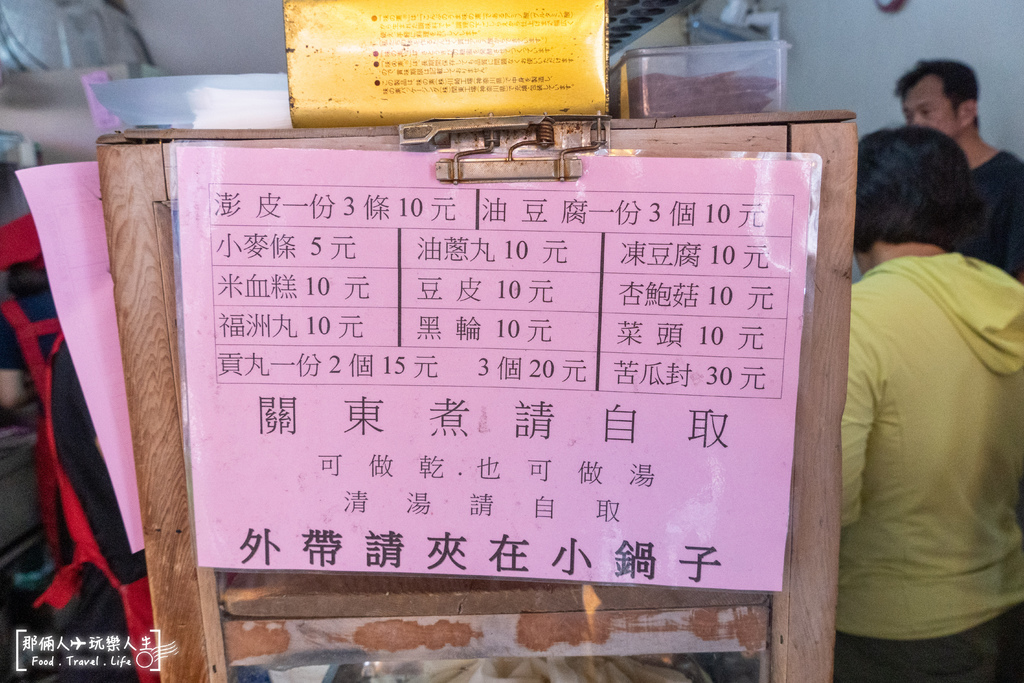 澎皮一份3條10元 油豆腐一份3個10元
小麥條 5元 油蔥丸 10 元 凍豆腐 10 元
米血糕 10 元 豆皮 10 元 杏鮑菇 10 元
福洲丸 10 元 黑輪 10 元 菜頭 10 元
貢丸一份 2 個 15 元 3 個 20 元 苦瓜封 30 元
關東煮請自取
可做乾.也可做湯
清湯請自取
外帶請夾在小鍋子
那倆人玩樂人生
Food . Travel . Life